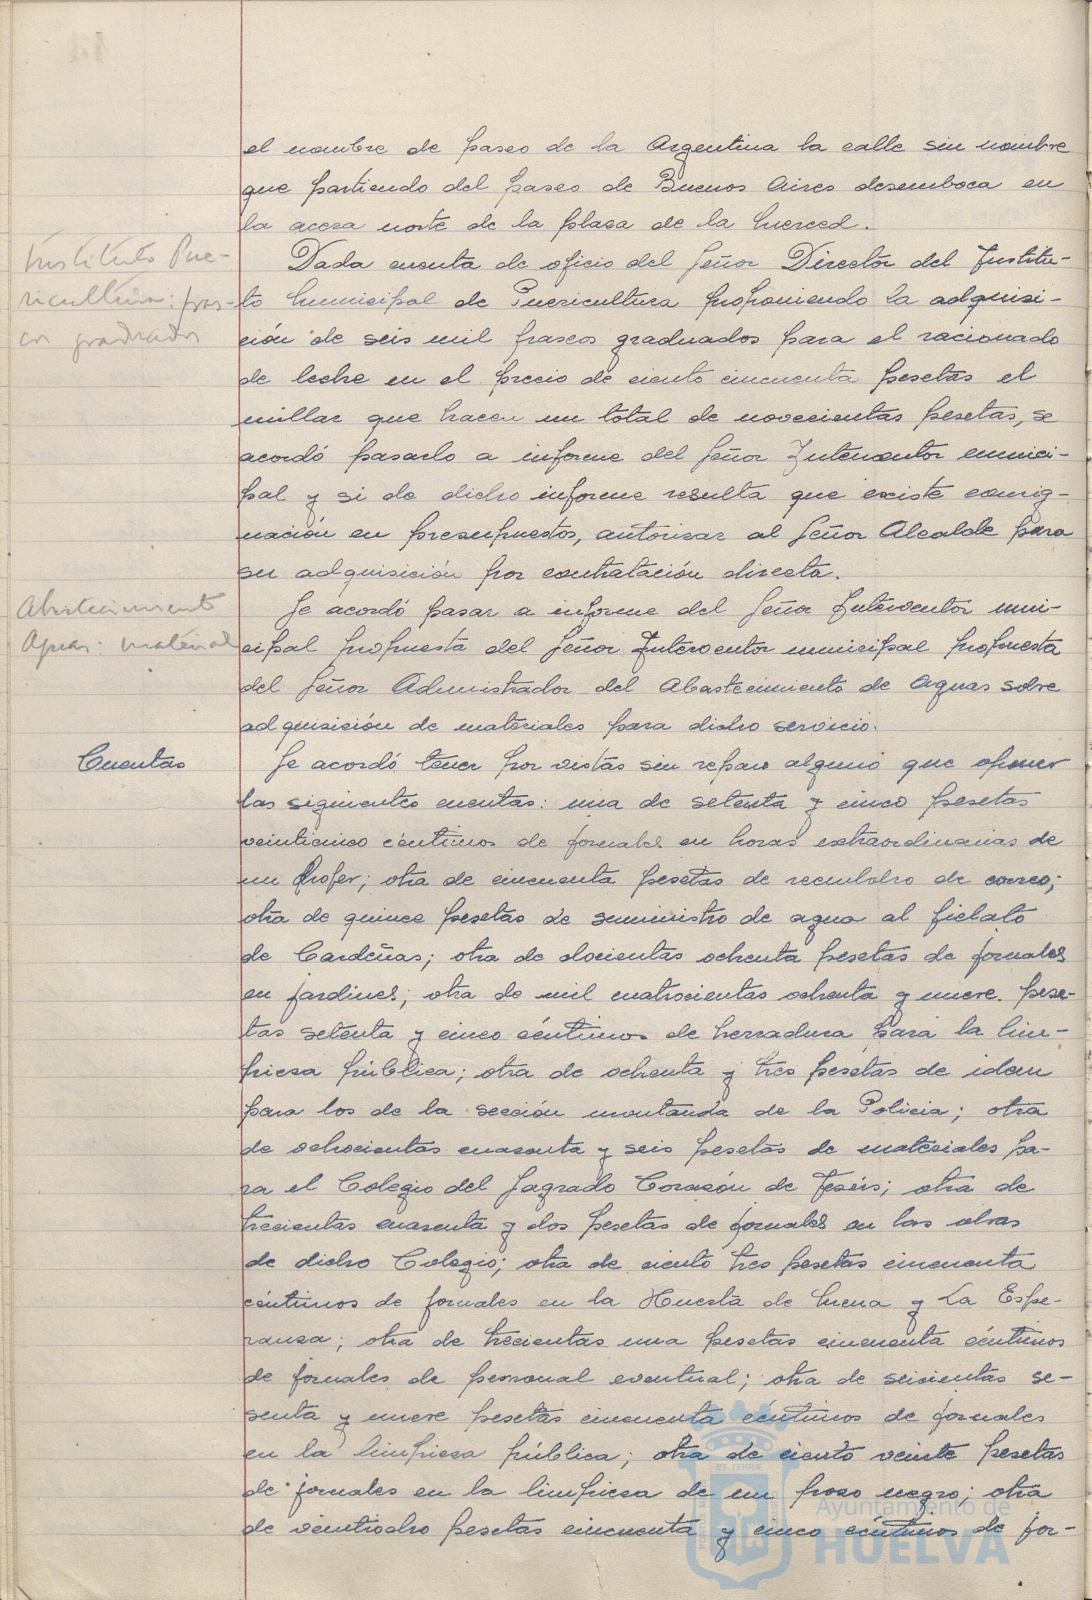 el nombre de paseo de la Argentina la calle sin nombre
que partiendo del paseo de Buenos Aires desemboca en
la acera norte de la plasa de la Merced.
Instituto Pue-
ricultura: fras-
cos graduados
Dada cuenta de oficio del Señor Director del Institu-
to Municipal de Puericultura proponiendo la adquisi-
ción de seis mil frascos graduados para el racionado
de leche en el precio de ciento cincuenta pesetas el
millar que hacen un total de novecientas pesetas, se
acordó pasarlo a informe del Señor Interventor munici-
pal y si de dicho informe resulta que existe consig-
nación en presupuestos, autorisar al Señor Alcalde para
su adquisición por contratación directa.
Abastecimiento
Aguas: material
Se acordó pasar a informe del Señor Interventor muni-
cipal propuesta del Señor Interventor municipal propuesta
del Señor Administrador del Abastecimiento de Aguas sobre
adquisición de materiales para dicho servicio.
Cuentas
Se acordó tener por vistas sin reparo alguno que oponer
las siguientes cuentas: una de setenta y cinco pesetas
veinticinco céntimos de jornales en horas extraordinarias de
un chofer; otra de cincuenta pesetas de reembolso de correo;
otra de quince pesetas de suministro de agua al fielato
de Cardeñas; otra de docientas ochenta pesetas de jornales
en jardines; otra de mil cuatrocientas ochenta y nueve pese-
tas setenta y cinco céntimos de herradura para la lim-
piesa pública; otra de ochenta y tres pesetas de idem
para los de la sección montanda de la Policia; otra
de ochocientas cuarenta y seis pesetas de materiales pa-
ra el Colegio del Sagrado Corasón de Jesús; otra de
trecientas cuarenta y dos pesetas de jornales en las obras
de dicho Colegio; otra de ciento tres pesetas cincuenta
céntimos de jornales en la Huerta de Mena y La Espe-
ransa; otra de trecientas una pesetas cincuenta céntimos
de jornales de personal eventual; otra de seicientas se-
senta y nueve pesetas cincuenta céntimos de jornales
en la limpiesa pública; otra de ciento veinte pesetas
de jornales en la limpiesa de un poso negro; otra
de veintiocho pesetas cincuenta y cinco céntimos de jor-
Ayuntamiento de
HUELVA